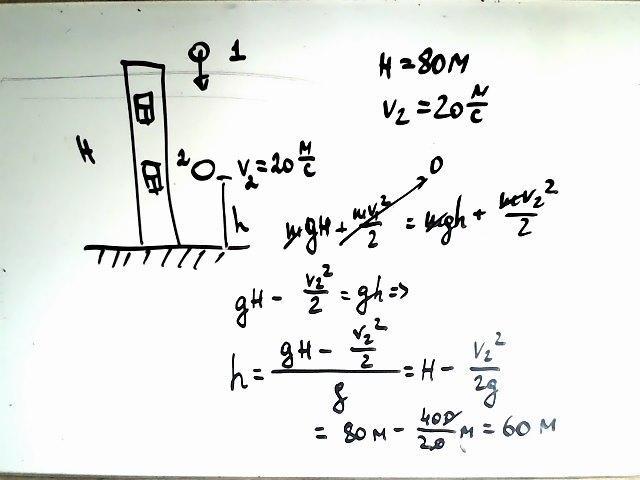 1
H = 80 м
V₂ = 20 м/с
H
2 V₂ = 20 м/с
h
mgH + mv₁²/2 = mgh + mv₂²/2
0
gH - v₂²/2 = gh =>
h = (gH - v₂²/2)/g = H - v₂²/2g
= 80 м - 400/20 м = 60 м